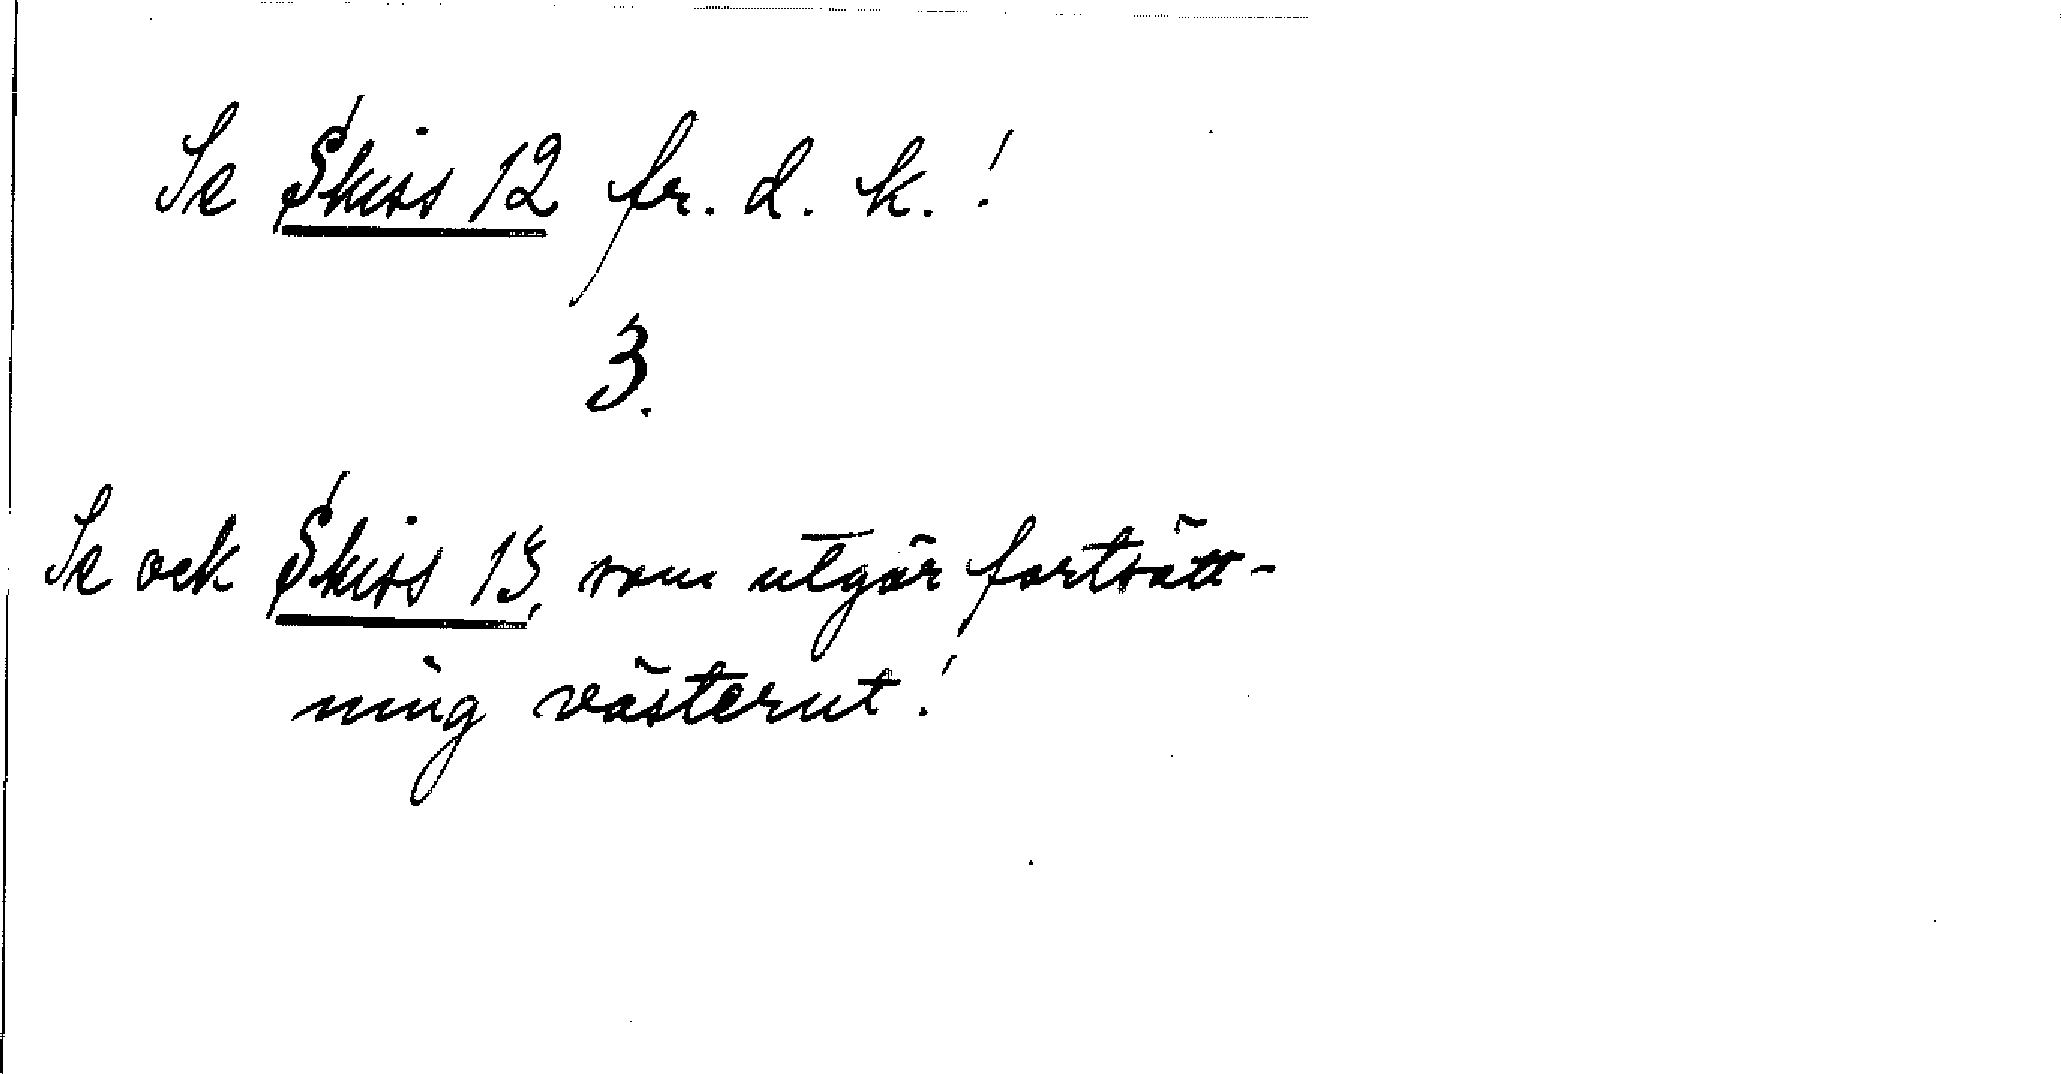 Se Skiss 12 fr. d. k.!
3.
Se ock Skiss 13, som utgör fortsätt-
ning västerut!